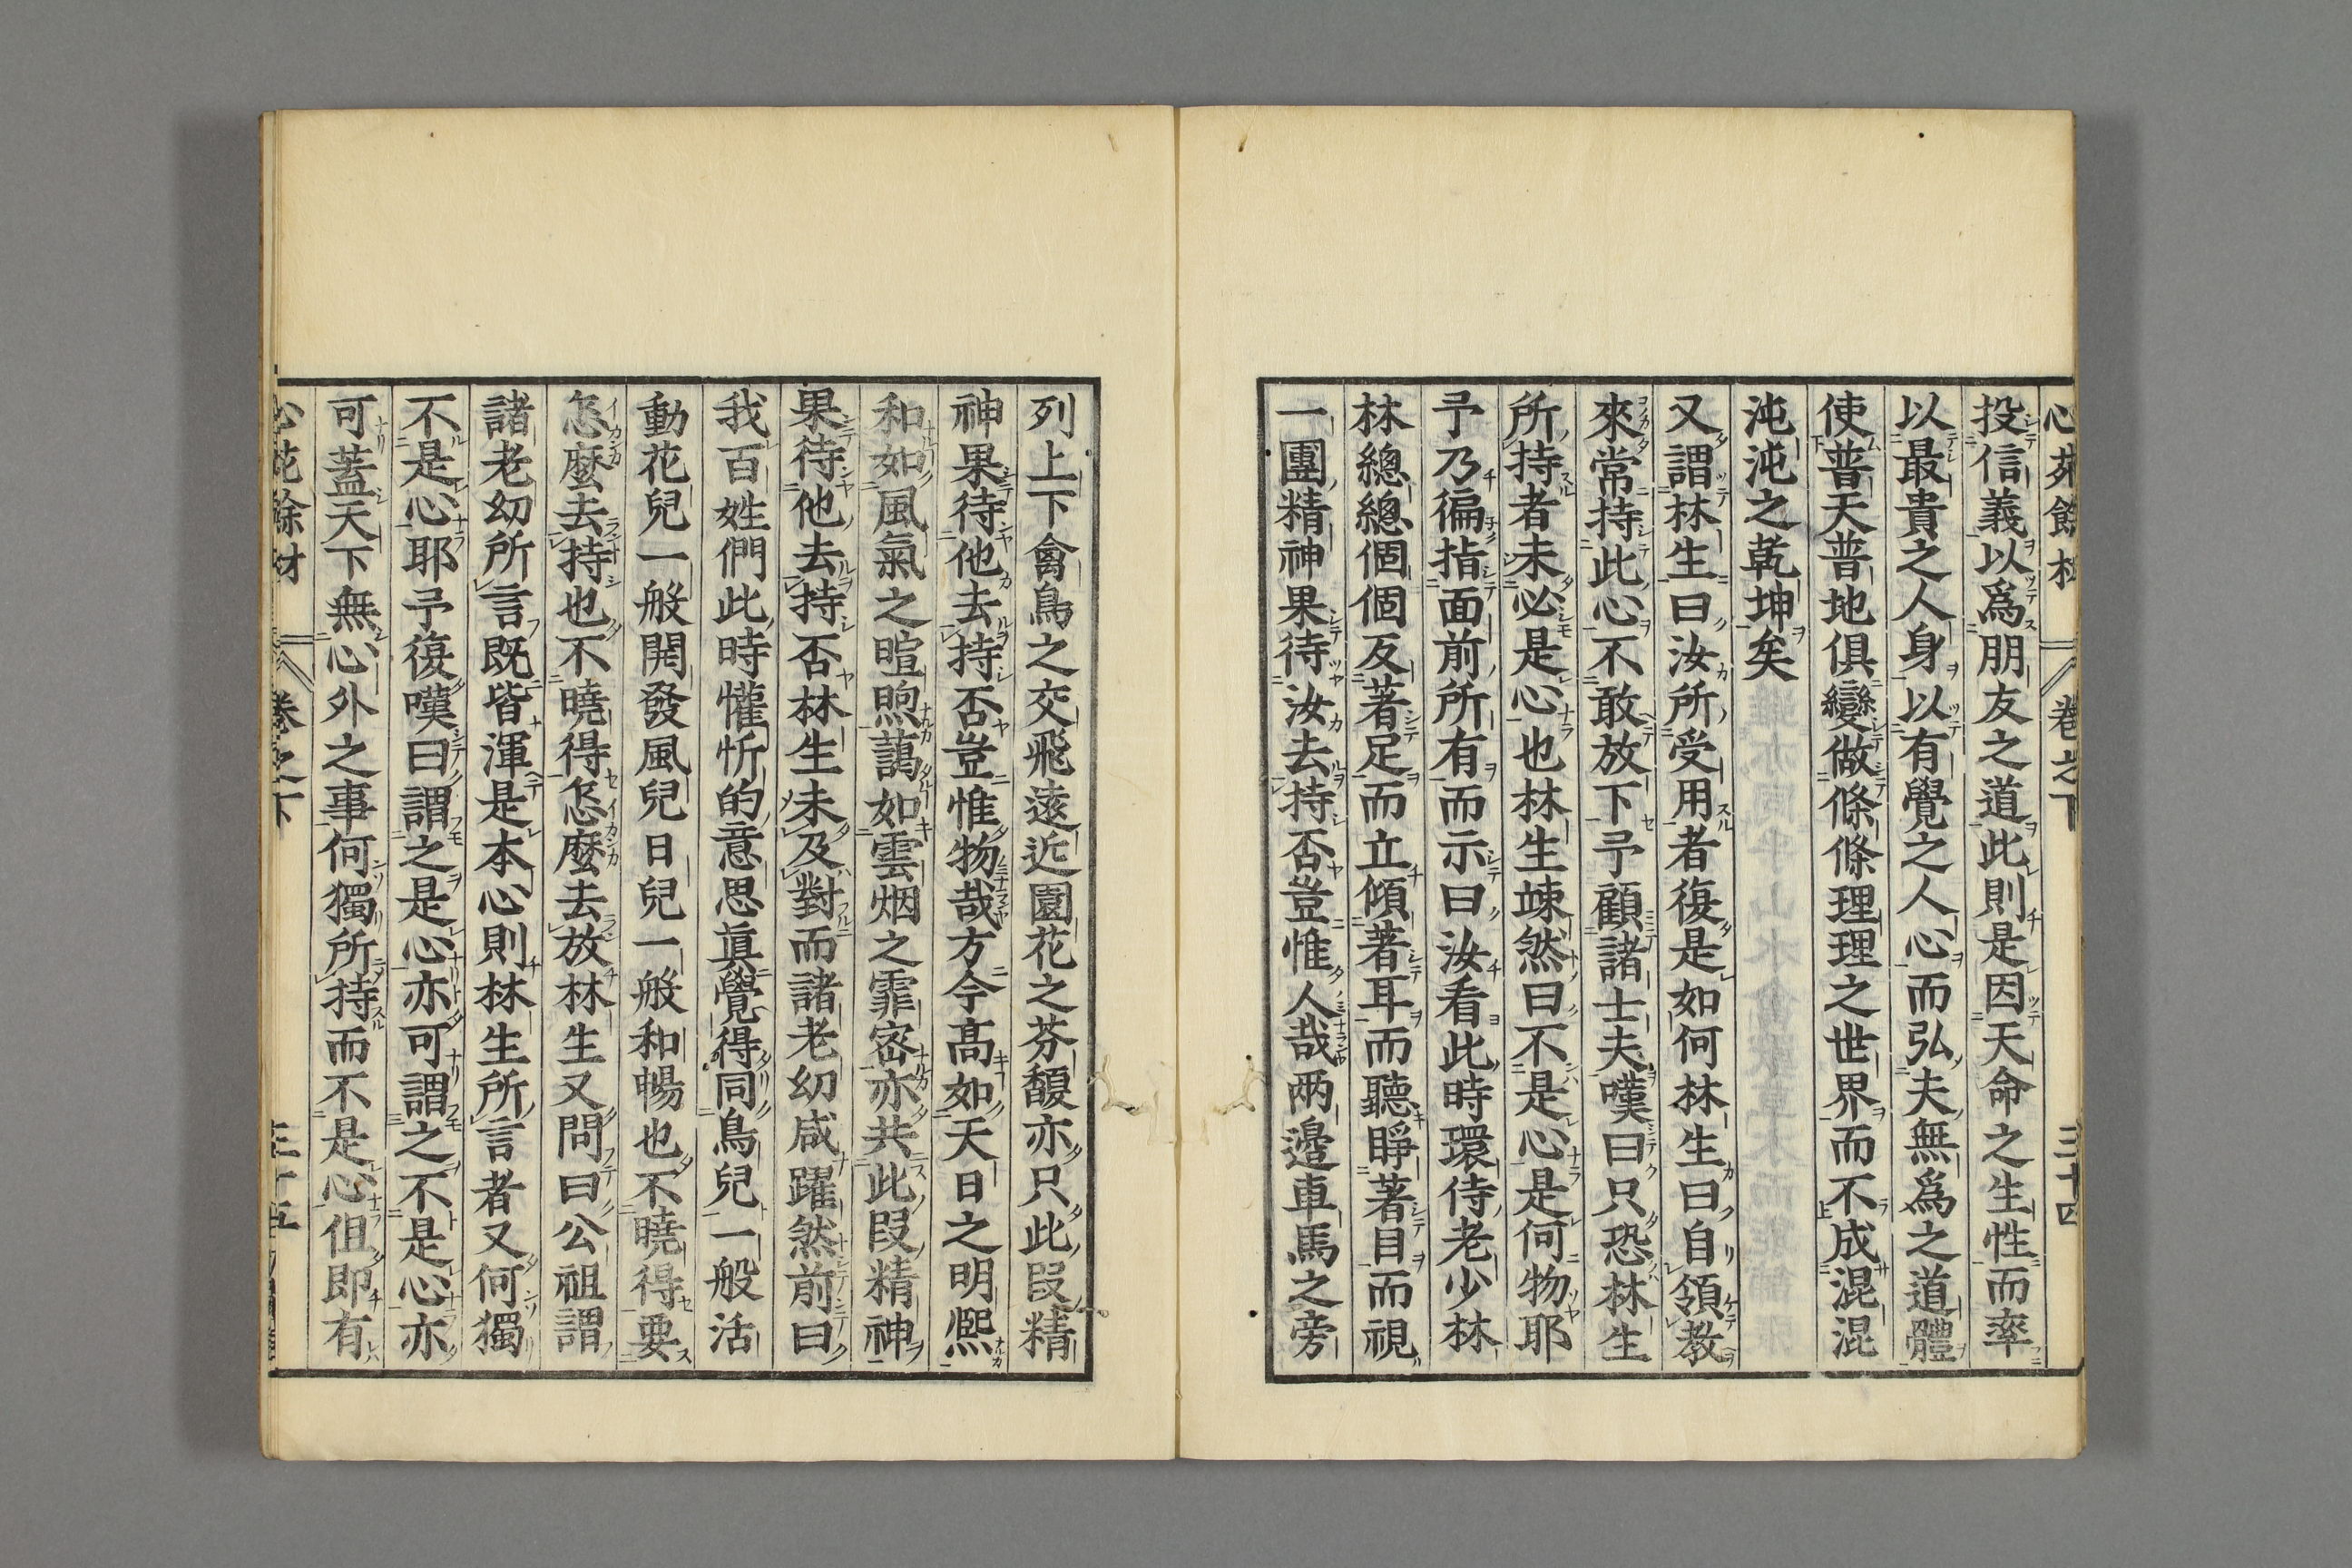 投信義以爲朋友之道此則是因天命之生性而率
以最貴之人身以有覺之人心而弘夫無爲之道體
使普天普地俱變做條條理理之世界而不成混混
沌沌之乾坤矣
又謂林生曰汝所受用者復是如何林生曰自領教
來常持此心不敢放下予顧諸士夫嘆曰只恐林生
所持者未必是心也林生竦然曰不是心是何物耶
予乃徧指面前所有而示曰汝看此時環侍老少林
林總總個個反著足而立傾著耳而聽睜著目而視
一團精神果待汝去持否豈惟人哉兩邊車馬之旁
列上下禽鳥之交飛遠近園花之芬馥亦只此段精
神果待他去持否豈惟物哉方今高如天日之明熈
和如風氣之暄煦藹如雲烟之霏密亦共此段精神
果待他去持否林生未及對而諸老幼咸躍然前曰
我百姓們此時懽忻的意思眞覺得同鳥兒一般活
動花兒一般開發風兒日兒一般和暢也不曉得要
怎麼去持也不曉得怎麼去放林生又問曰公祖謂
諸老幼所言既皆渾是本心則林生所言者又何獨
不是心耶予復嘆曰謂之是心亦可謂之不是心亦
可蓋天下無心外之事何獨所持而不是心但即有
卷之下
三十五